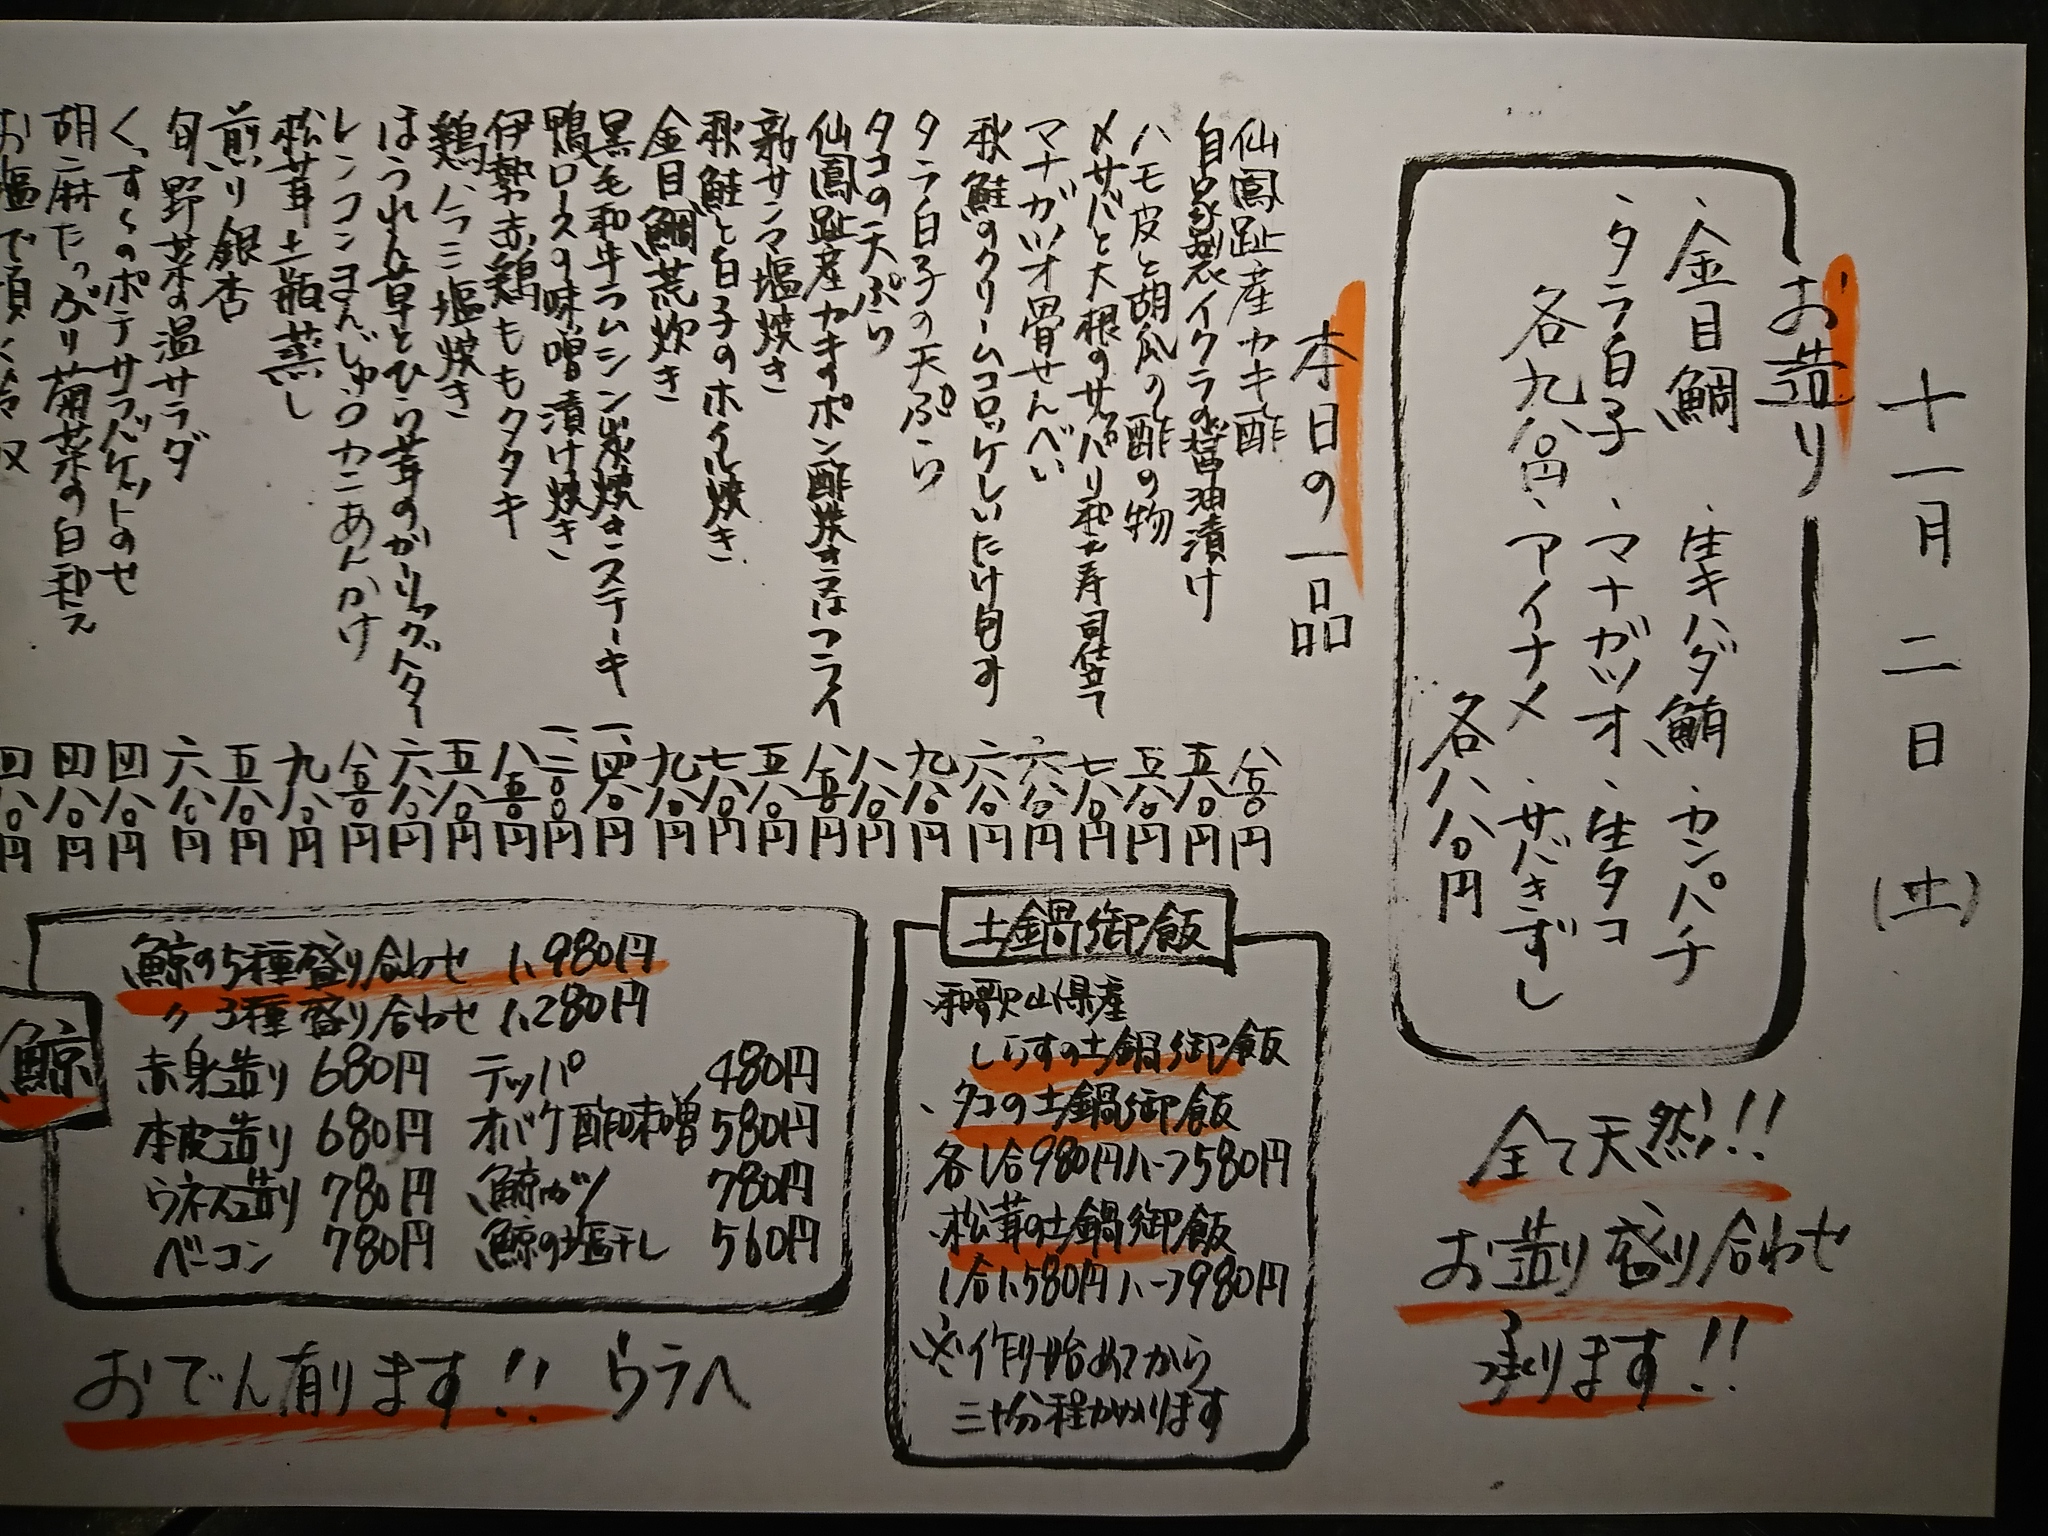 十一月二日(土)
お造り
・金目鯛 ・生キハダ鮪 ・カンパチ
・タラ白子 ・マナガツオ ・生タコ
各九八〇円 ・アイナメ ・サバきずし
各八八〇円
全て天然!!
お造り盛り合わせ
承ります!!
本日の一品
仙鳳趾産カキ酢 八五〇円
自家製イクラの醤油漬け 五八〇円
ハモ皮と胡瓜の酢の物 五八〇円
〆サバと大根のサッパリ和え寿司仕立て 七八〇円
マナガツオ骨せんべい 六八〇円
秋鮭のクリームコロッケしいたけ包み 六八〇円
タラ白子の天ぷら 九八〇円
タコの天ぷら 八八〇円
仙鳳趾産カキのポン酢焼き又はフライ 八五〇円
新サンマ塩焼き 五八〇円
秋鮭と白子のホイル焼き 七八〇円
金目鯛荒炊き 九八〇円
黒毛和牛ラムシン炭焼きステーキ 一、四八〇円
鴨ロースの味噌漬け焼き 一、二〇〇円
伊勢赤鶏ももタタキ 八五〇円
鶏ハラミ塩焼き 五八〇円
ほうれん草とひら茸のガーリックバター 六八〇円
レンコンまんじゅうカニあんかけ 八五〇円
松茸土瓶蒸し 九八〇円
煎り銀杏 五八〇円
旬野菜の温サラダ 六八〇円
くんすくのポテサラバケットのせ 四八〇円
胡麻たっぷり菊菜の白和え 四八〇円
お塩で頂く冷奴 四八〇円
土鍋御飯
・和歌山県産
しらすの土鍋御飯
・タコの土鍋御飯
各1合980円ハーフ580円
・松茸の土鍋御飯
1合1,580円ハーフ980円
※作り始めてから
三十分程かかります
鯨
鯨の5種盛り合わせ 1,980円
〃 3種盛り合わせ 1,280円
赤身造り 680円 テッパ 480円
本皮造り 680円 オバケ酢味噌 580円
ウネス造り 780円 鯨ガツ 780円
ベーコン 780円 鯨の塩干し 560円
おでん有ります!! ウラへ